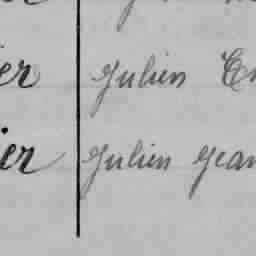 er Julien Em
er Julien Jean